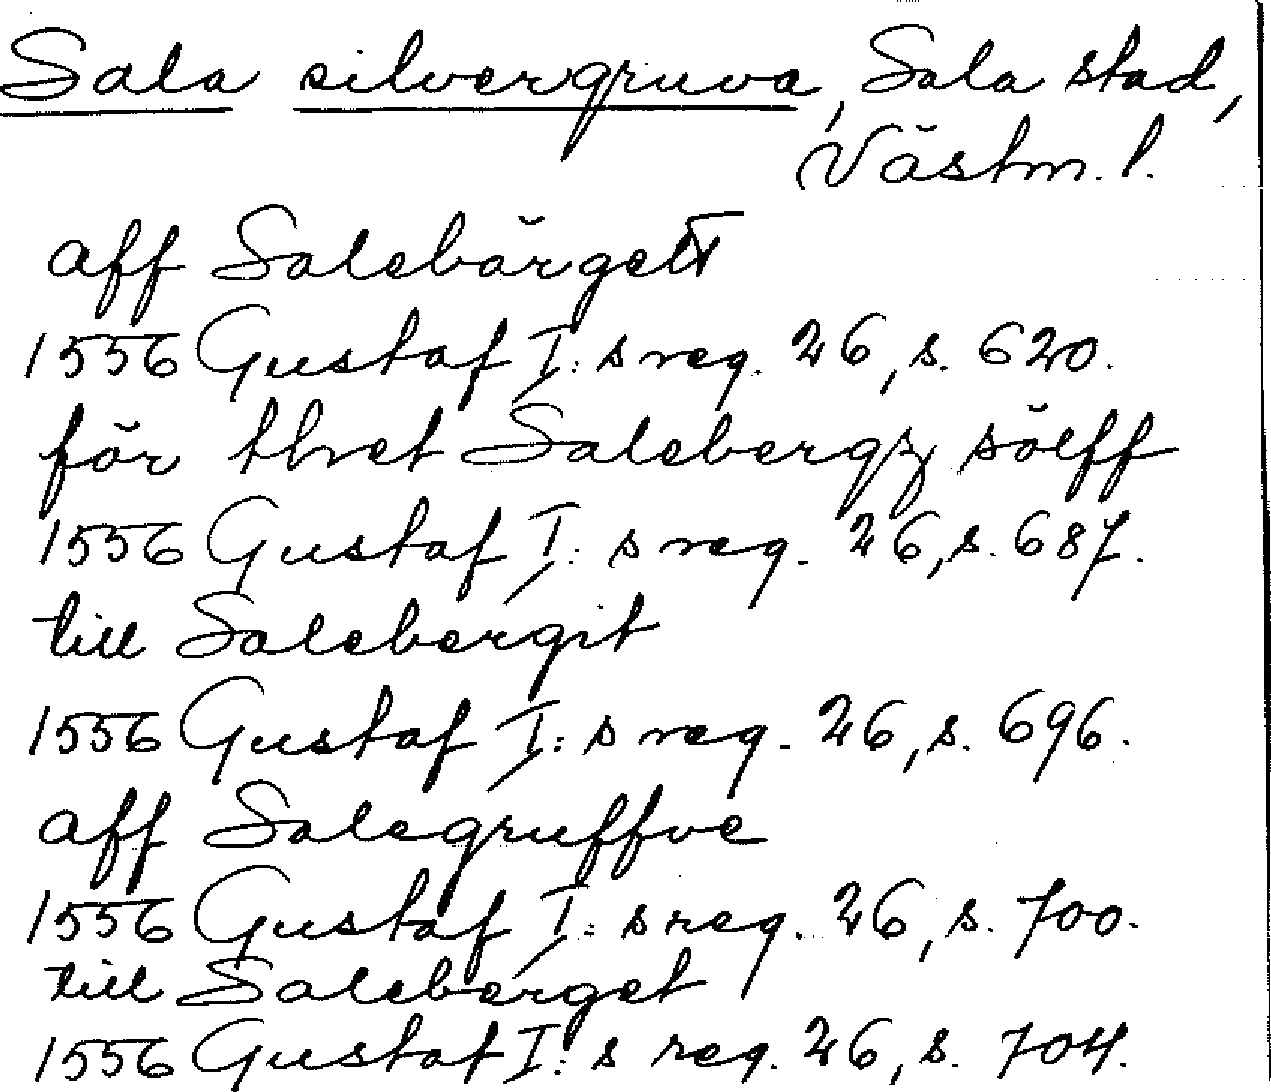 Sala silvergruva, Sala stad,
Västm. l.
aff Salebärgett
1556 Gustaf I:s reg. 26, s. 620.
för thret Salebergz sölff
1556 Gustaf I:s reg. 26, s. 687.
till Salebergit
1556 Gustaf I:s reg. 26, s. 696.
aff Salegruffve
1556 Gustaf I:s reg. 26, s. 700.
till Saleberget
1556 Gustaf I:s reg. 26, s. 704.